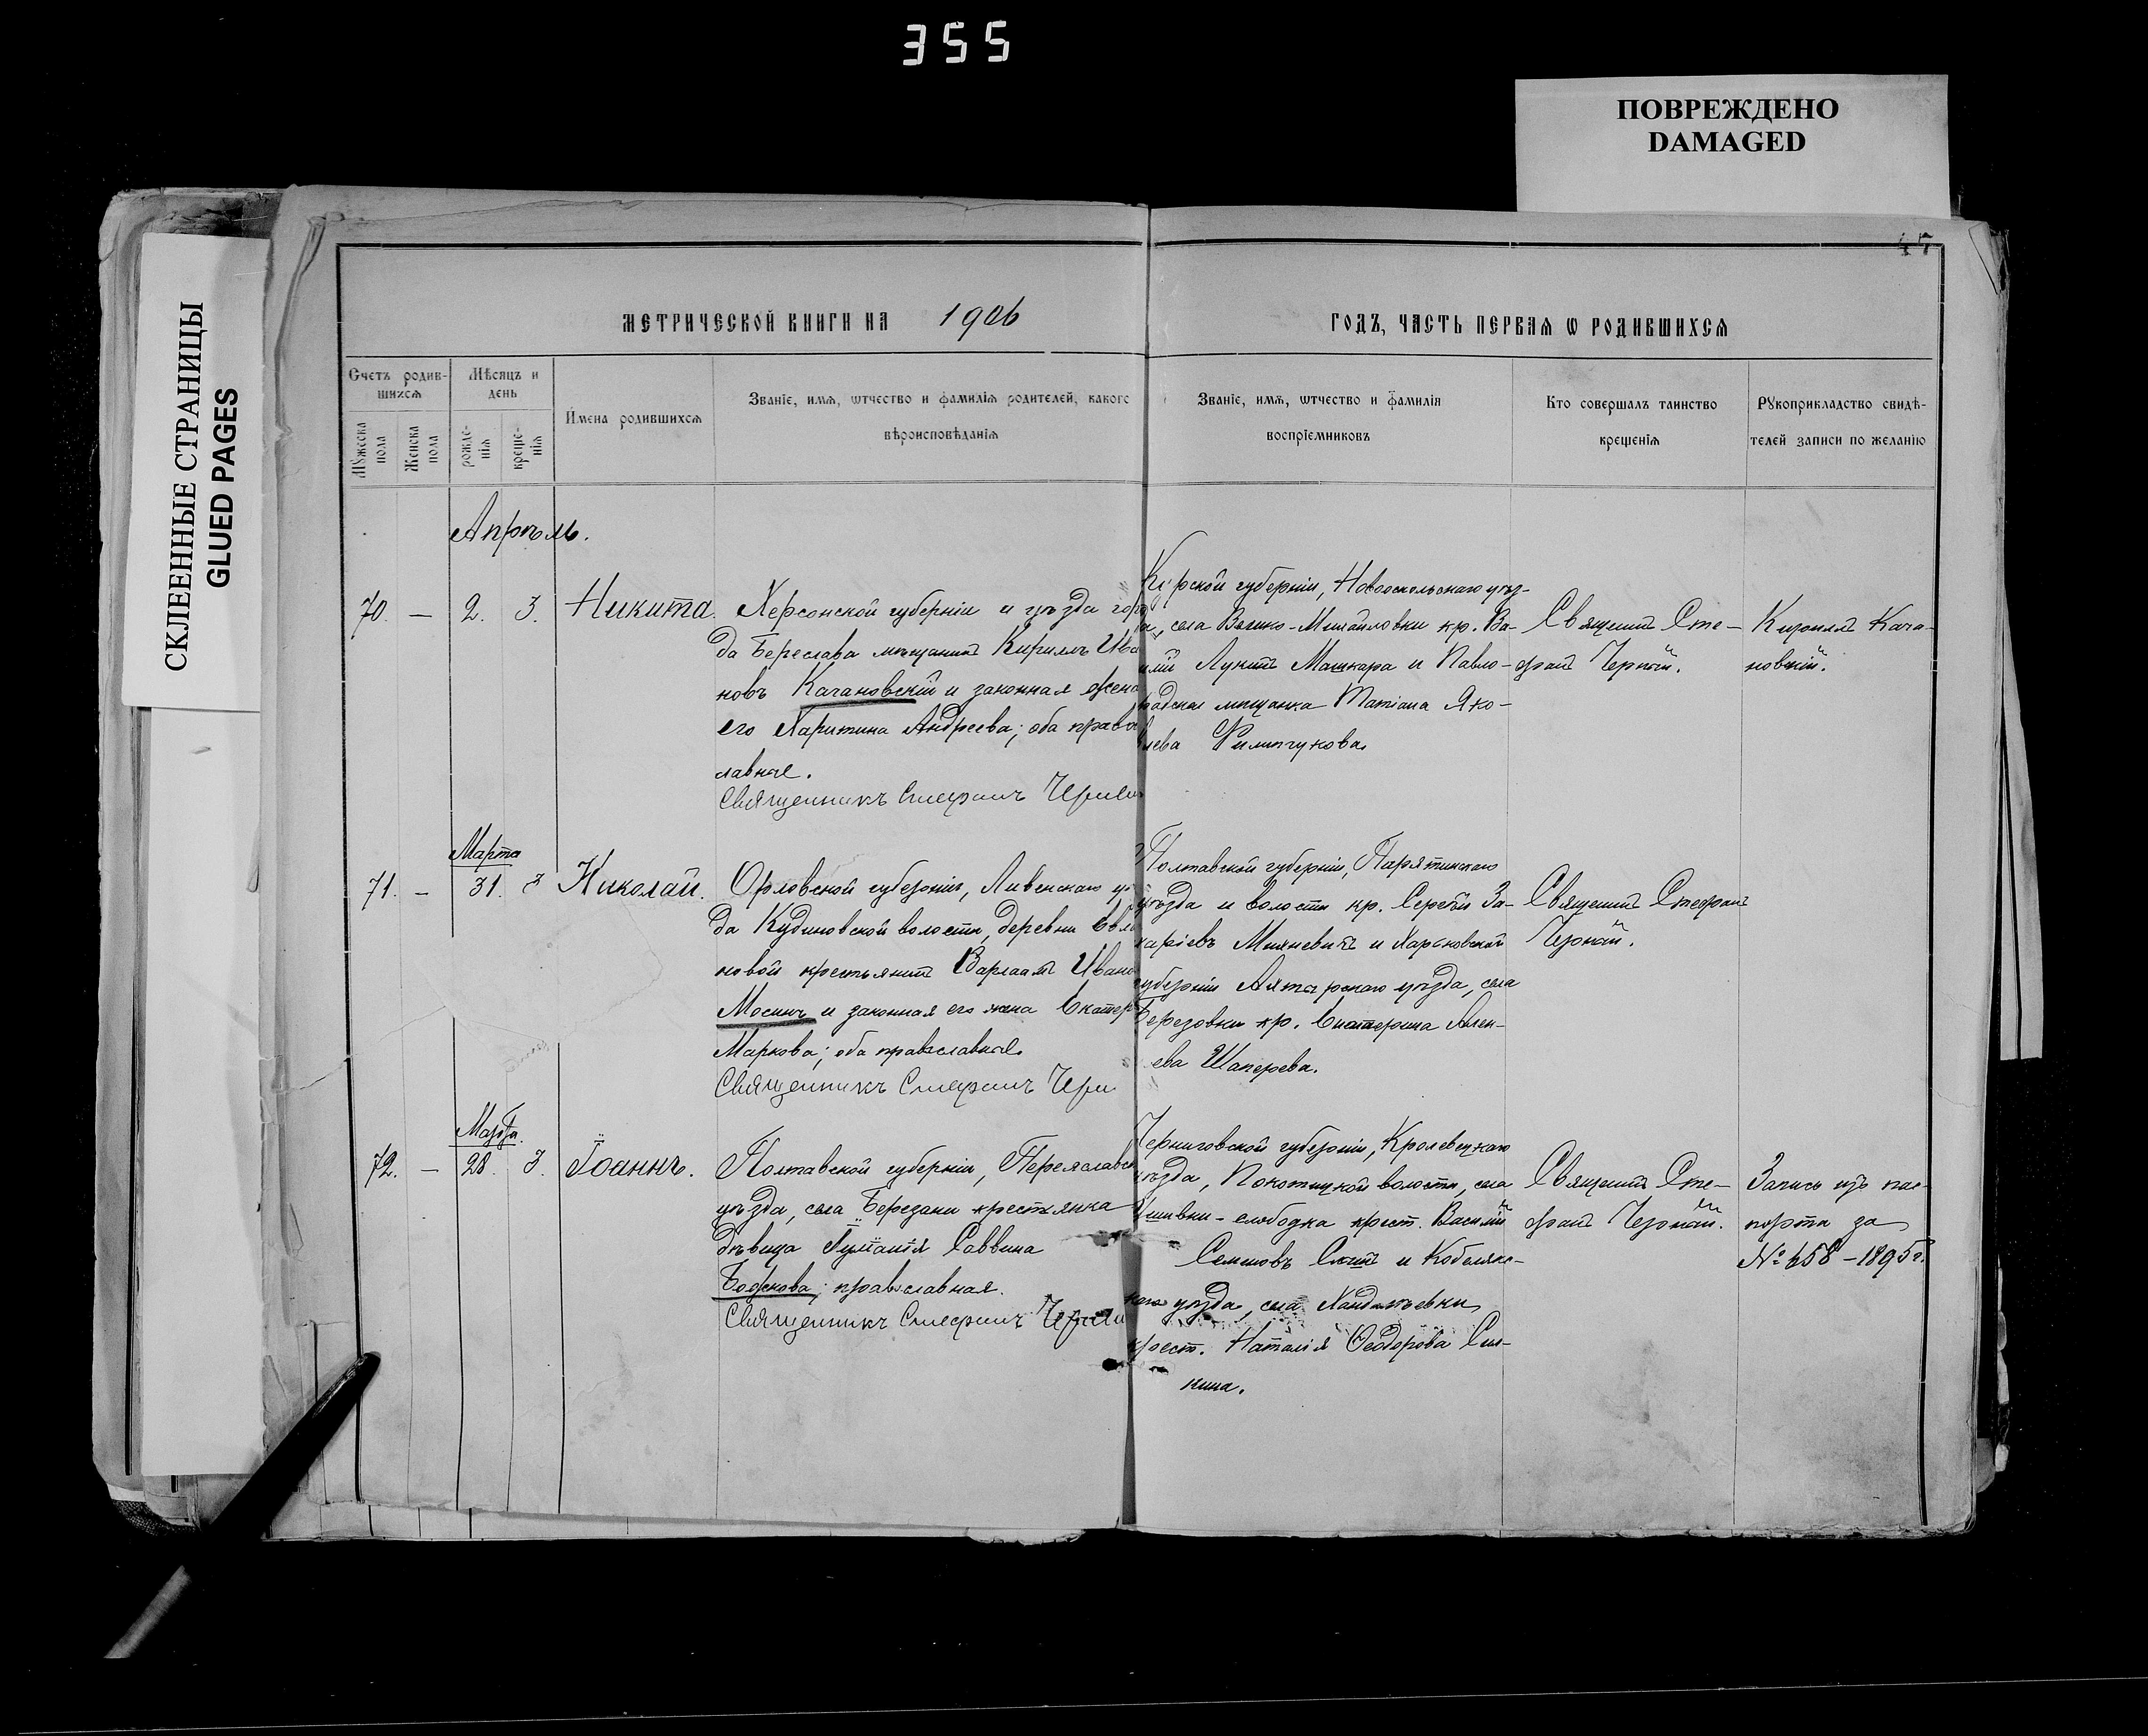 355
ПОВРЕЖДЕНО
DAMAGED
СКЛЕЕННЫЕ СТРАНИЦЫ
GLUED PAGES
47
МЕТРИЧЕСКОЙ КНИГИ НА 1906
ГОДЪ, ЧАСТЬ ПЕРВАѦ Ѡ РОДИВШИХСѦ
Счетъ родив-
шихсѧ
Мѣсяцъ и
день
Мꙋжеска
пола
Женска
пола
рожде-
нїѧ
креще-
нїѧ
Имена родившихсѧ
Званїе, имѧ, ѡтчество и фамилїѧ родителей, какого
вѣроисповѣданїѧ
Званїе, имѧ, ѡтчество и фамилїѧ
воспрїемниковъ
Кто совершалъ таинство
крещенїѧ
Рꙋкоприкладство свидѣ-
телей записи по желанїю
Апрѣль.
70. — 2. 3. Никита.
Херсонской губерніи и уѣзда горо
да Береслава мѣщанинъ Кириллъ Ива
новъ Качановскій и законная жена
его Харитина Андреева; оба право
лавные.
Священникъ Стефанъ Черн
Курской губерніи, Новооскольскаго уѣз-
да, села Велико-Михайловки кр. Ва-
илій Лукинъ Машкара и Павло-
радская мѣщанка Татіана Яко-
влева Филипчукова.
Священ. Сте-
фанъ Чернай.
Кириллъ Кача-
новскій.
Марта
71. — 31. 3 Николай.
Орловской губерніи, Ливенскаго у
да Кудиновской волости, деревни
новой крестьянинъ Варлаамъ Ивано
Мосинъ и законная его жена Екатер
Маркова; оба православные.
Священникъ Стефанъ Черн
Полтавской губерніи, Пирятинскаго
уѣзда и волости кр. Сергѣй За-
харіевъ и Харьковской
губерніи Ахтырскаго уѣзда, села
Березовки кр. Екатерина Алек-
ева Шаперева.
Священ. Стефанъ
Чернай.
Марта
72. — 28. 3. Іоаннъ.
Полтавской губерніи, Переяславск
уѣзда, села Березани крестьянка
дѣвица Іуліанія Саввина
православная.
Священникъ Стефанъ Черн
Черниговской губерніи, Кролевецкаго
уѣзда, волости, села
слободка крест. Василій
Семеновъ и Кобеляк-
каго уѣзда, села
крест. Наталія Ѳеодорова Ся-
кина.
Священ. Сте-
фанъ Чернай.
Запись изъ пас-
порта за
№ 658 – 1895 г.